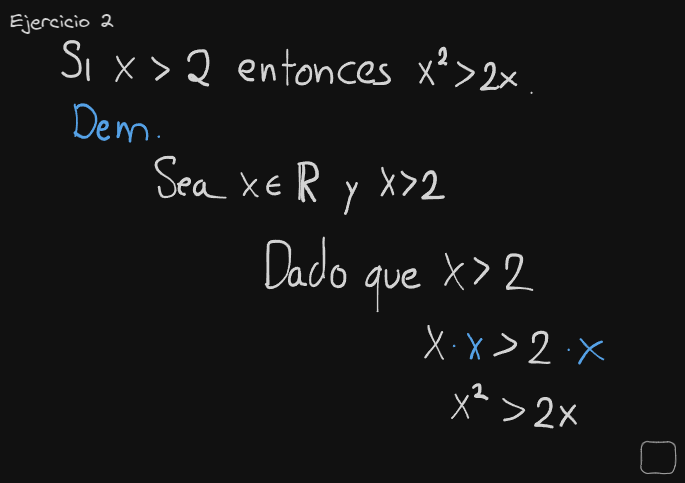 Ejercicio 2
Si x > 2 entonces x² > 2x.
Dem.
Sea x ∈ ℝ y x > 2
Dado que x > 2
x · x > 2 · x
x² > 2x